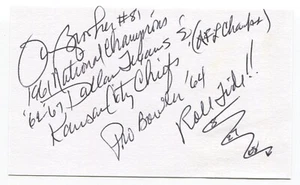 Brooker #81
1961 National Champions
'62-'67 Dallas Texans & (AFL Champs)
Kansas City Chiefs
Pro Bowler '64
Roll Tide!!